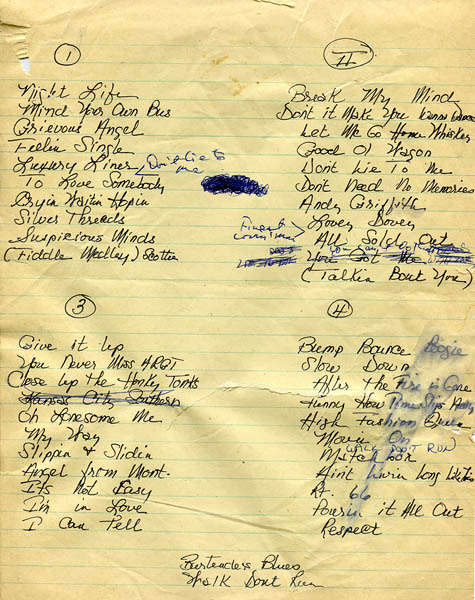 1
Night Life
Mind Your Own Bus
Grievous Angel
Feelin Single
Luxury Liner
Don't Lie to
me
To Love Somebody
Cryin Waitin Hopin
Silver Threads
Suspicious Minds
(Fiddle Medley) Scottie
II
Break My Mind
Dont it Make You Wanna Dance
Let Me Go Home Whiskey
Good Ol Wagon
Dont Lie To Me
Dont Need No Memories
Andy Griffith
Lovey Dovey
All Sold Out
You Got Me
(Talkin Bout You)
3
Give it Up
You Never Miss
Close up the Honky Tonks
Kansas City Southern
Oh Lonesome Me
My Way
Slippin & Slidin
Angel from Mont.
Its Not Easy
I'm in Love
I Can Tell
4
Bump Bounce Boogie
Slow Down
After the Fire is Gone
Funny How Time Slips Away
High Fashion Queen
Movin On
WALK DON'T RUN
Matchbox
Aint Livin Long Like this
Rt. 66
Pourin it All Out
Respect
Bartenders Blues
Walk Dont Run